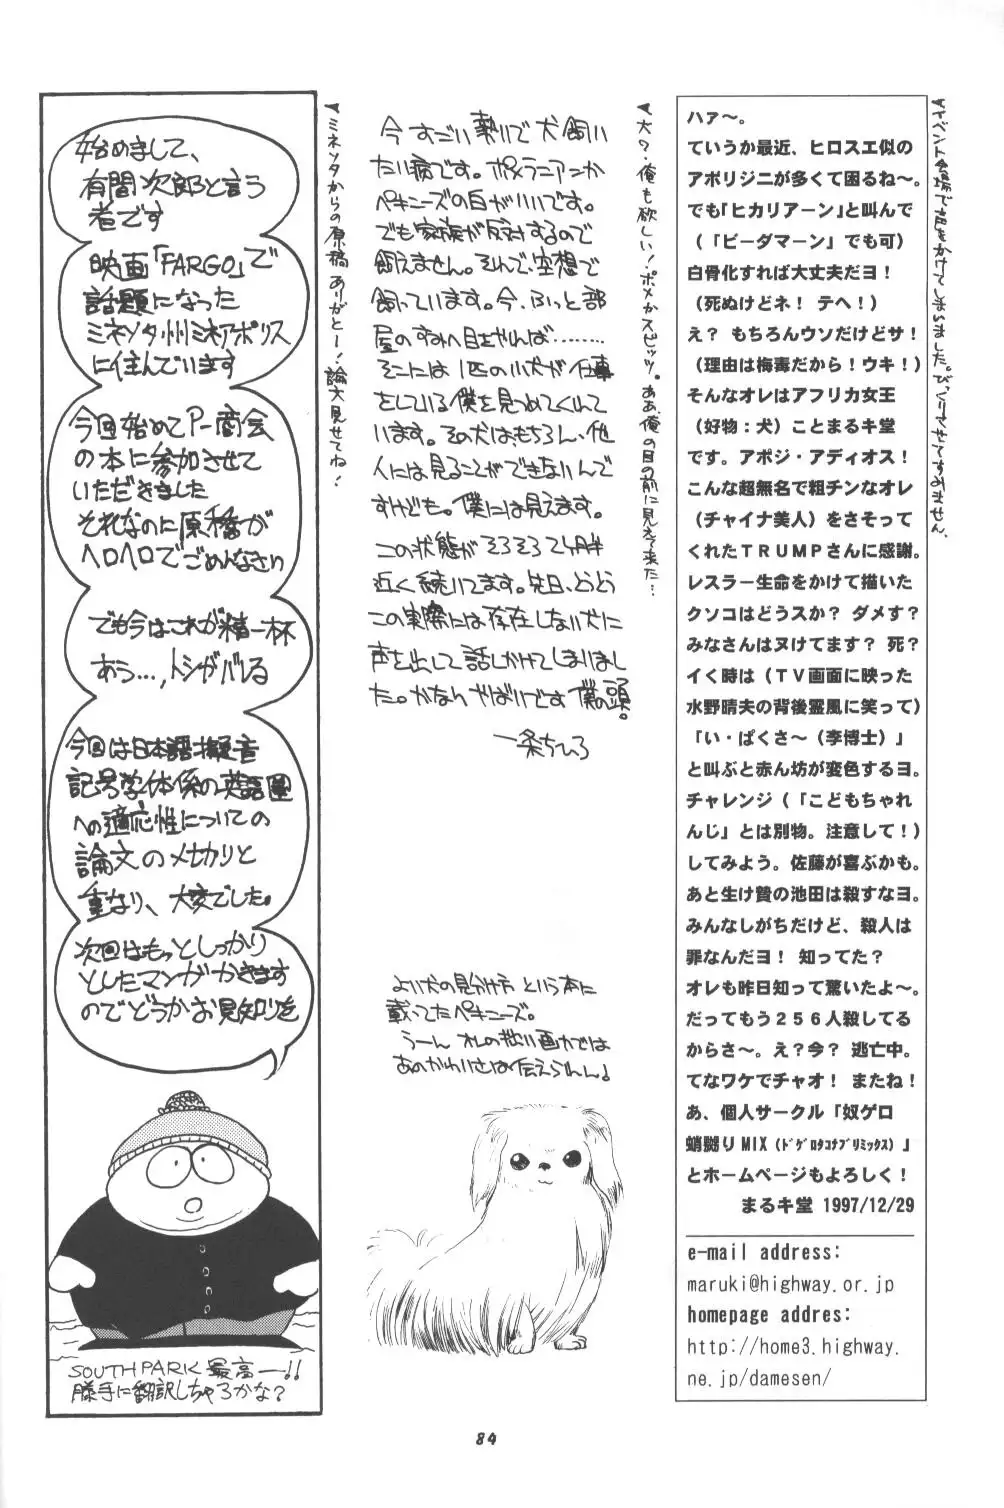 ▼イベント会場で声をかけてしまいました。びっくりさせてすみません。
ハァ～。
ていうか最近、ヒロスエ似の
アボリジニが多くて困るね～。
でも「ヒカリアーン」と叫んで
（「ビーダマーン」でも可）
白骨化すれば大丈夫だヨ！
（死ぬけどネ！ テヘ！）
え？ もちろんウソだけどサ！
（理由は梅毒だから！ウキ！）
そんなオレはアフリカ女王
（好物：犬）ことまるキ堂
です。アボジ・アディオス！
こんな超無名で粗チンなオレ
（チャイナ美人）をさそって
くれたＴＲＵＭＰさんに感謝。
レスラー生命をかけて描いた
クソコはどうスか？ ダメす？
みなさんはヌけてます？ 死？
イく時は（ＴＶ画面に映った
水野晴夫の背後霊風に笑って）
「い・ぱくさ～（李博士）」
と叫ぶと赤ん坊が変色するヨ。
チャレンジ（「こどもちゃれ
んじ」とは別物。注意して！）
してみよう。佐藤が喜ぶかも。
あと生け贄の池田は殺すなヨ。
みんなしがちだけど、殺人は
罪なんだヨ！ 知ってた？
オレも昨日知って驚いたよ～。
だってもう２５６人殺してる
からさ～。え？今？ 逃亡中。
てなワケでチャオ！ またね！
あ、個人サークル「奴ゲロ
蛸嬲りMIX（ﾄﾞｹﾞﾛﾀｺﾅﾌﾞﾘﾐｯｸｽ）」
とホームページもよろしく！
まるキ堂 1997/12/29
e-mail address:
maruki@highway.or.jp
homepage addres:
http://home3.highway.
ne.jp/damesen/
▼犬？・俺も欲しい！ポメかスピッツ。ああ、俺の目の前に見えて来た…
今すごい勢いで犬飼い
たい病です。ポメラニアンか
ペキニーズの白がいいです。
でも家族が反対するので
飼えません。それで、空想で
飼っています。今、ふっと部
屋のすみへ目をやれば………
そこには1匹の小犬が仕事
をしている僕を見つめてくれて
います。その犬はもちろん、他
人には見ることができないんで
すけども。僕には見えます。
この状態がそろそろ2ヶ月半
近く続いてます。先日、とうとう
この実際には存在しない犬に
声を出して話しかけてしまいまし
た。かなりやばいです僕の頭。
一条ちひろ
よい犬の見分け方という本に
載ってたペキニーズ。
うーん オレの拙い画力では
あのかわいさは伝えられん♪
▼ミネソタからの原稿ありがとー！論文見せてね！
始めまして、
有間次郎と言う
者です
映画「FARGO」で
話題になった
ミネソタ州ミネアポリス
に住んでいます
今回始めてP-商会
の本に参加させて
いただきました
それなのに原稿が
ヘロヘロでごめんなさい
でも今はこれが精一杯
あう…,トシがバレる
今回は日本語擬音
記号学体係の英語圏
への適応性についての
論文のメ切りと
重なり、大変でした。
次回はもっとしっかり
としたマンガかきます
のでどうかお見知りを
SOUTH PARK 最高ー!!
勝手に翻訳しちゃろかな？
84